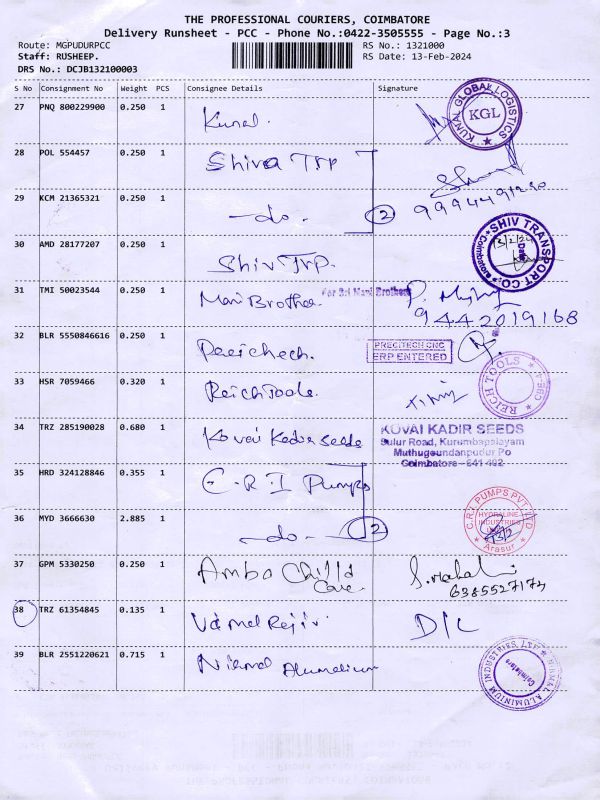 THE PROFESSIONAL COURIERS, COIMBATORE
Delivery Runsheet - PCC - Phone No.:0422-3505555 - Page No.:3
Route: MGPUDURPCC RS No.: 1321000
Staff: RUSHEEP. RS Date: 13-Feb-2024
DRS No.: DCJB132100003
S No Consignment No Weight PCS Consignee Details Signature
27 PNQ 800229900 0.250 1 Kunal. KUNAL GLOBAL LOGISTICS KGL
28 POL 554457 0.250 1 Shiva Trp
29 KCM 21365321 0.250 1 -do- 2 9994491230
30 AMD 28177207 0.250 1 Shiv Trp. SHIV TRANSPORT CO. Coimbatore Date 13/2/24
31 TMI 50023544 0.250 1 Mani Brother For Sri Mani Brothers 9442019168
32 BLR 5550846616 0.250 1 PRECITECH CNC
ERP ENTERED
33 HSR 7059466 0.320 1 Reich Tools. REICH TOOLS
34 TRZ 285190028 0.680 1 Kovai Kadir seeds KOVAI KADIR SEEDS
Sulur Road, Kurumbapalayam
Muthugoundanpudur Po
Coimbatore - 641 402
35 HRD 324128846 0.355 1 C.R.I Pumps
36 MYD 3666630 2.885 1 -do- 2 C.R.I. PUMPS PVT LTD HYDROLINE INDUSTRIES Arasur
37 GPM 5330250 0.250 1 Ambo Child
Care 6385527174
38 TRZ 61354845 0.135 1 D/L
39 BLR 2551220621 0.715 1 Nirmal Aluminium NIRMAL ALUMINIUM INDUSTRIES, LTD Coimbatore